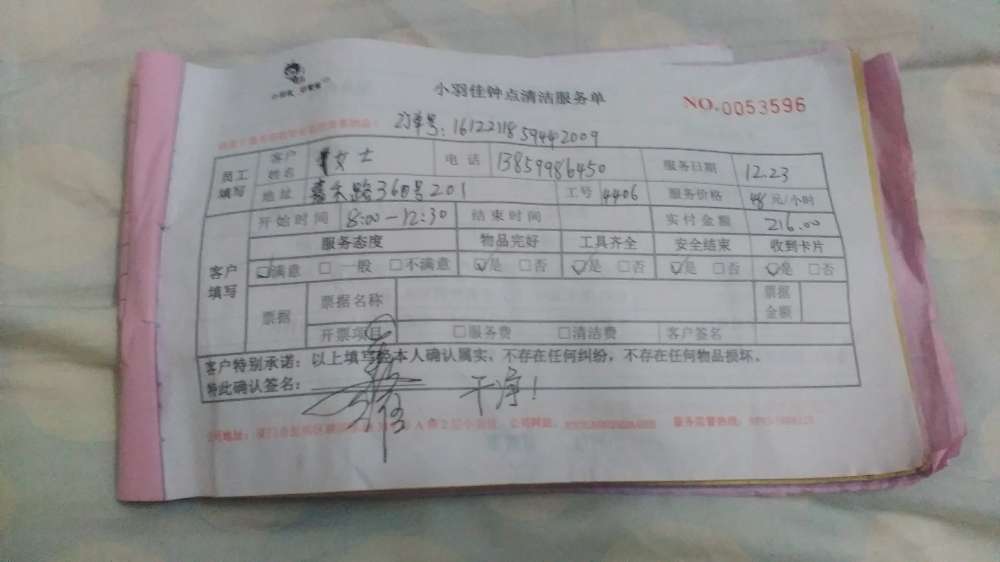 小羽佳钟点清洁服务单
NO.0053596
订单号：1612211859442009
员工填写 客户姓名 女士 电话 13859986450 服务日期 12.23
地址 嘉禾路36号201 工号 4406 服务价格 48元/小时
客户填写 开始时间 8:00-12:30 结束时间 实付金额 216.00
服务态度 物品完好 工具齐全 安全结束 收到卡片
☑满意 □一般 □不满意 ☑是 □否 ☑是 □否 ☑是 □否 ☑是 □否
票据 票据名称 票据金额
开票项目 □服务费 □清洁费 客户签名
客户特别承诺：以上填写经本人确认属实，不存在任何纠纷，不存在任何物品损坏。
特此确认签名： 干净！
公司网址： 服务监督热线：